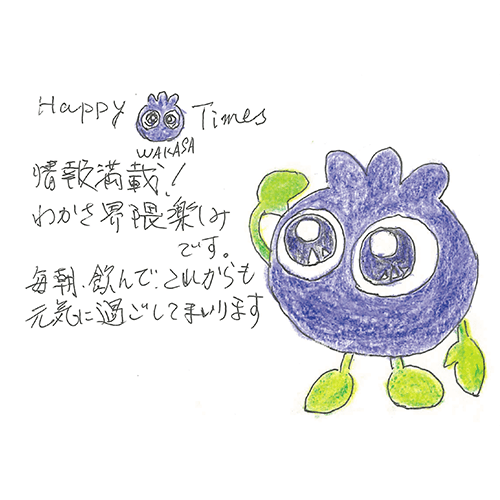 Happy Times
WAKASA
情報満載!
わかさ界隈楽しみ
です。
毎朝、飲んで、これからも
元気に過ごしてまいります